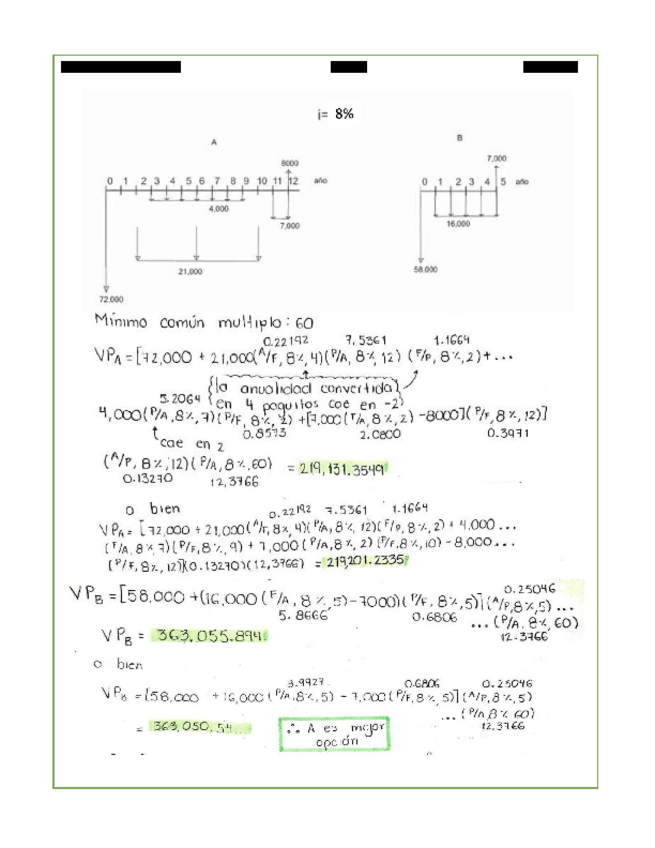 i= 8%
A
B
8000
0 1 2 3 4 5 6 7 8 9 10 11 12 año
4,000
7,000
21,000
72,000
7,000
0 1 2 3 4 5 año
16,000
58,000
Mínimo común multiplo: 60
0.22192 7.5361 1.1664
VPA = [72,000 + 21,000(A/F, 8%, 4)(P/A, 8%, 12) (F/P, 8%, 2) + ...
{la anualidad convertida}
en 4 paguitos cae en -2
5.2064
4,000(P/A, 8%, 7)(P/F, 8%, 2) + [7,000(F/A, 8%, 2) - 8000](P/F, 8%, 12)]
cae en 2
0.8573 2.0800 0.3971
(A/P, 8%, 12)(P/A, 8%, 60) = 219,131.3549
0.13270 12,3766
o bien
0.22192 7.5361 1.1664
VPA = [72,000 + 21,000(A/F, 8%, 4)(P/A, 8%, 12)(F/P, 8%, 2) + 4,000 ...
(F/A, 8%, 7)(P/F, 8%, 9) + 7,000(P/A, 8%, 2)(P/F, 8%, 10) - 8,000...
(P/F, 8%, 12)](0.13270)(12,3766) = 219,201.2335
0.25046
VPB = [58,000 + (16,000(F/A, 8%, 5) - 7000)(P/F, 8%, 5)](A/P, 8%, 5) ...
5.8666 0.6806 ... (P/A, 8%, 60)
12.3766
VPB = 363,055.894
o bien
3.9927 0.6806 0.25046
VPB = [58,000 + 16,000(P/A, 8%, 5) - 7,000(P/F, 8%, 5)](A/P, 8%, 5)
... (P/A 8% 60)
12,3766
= 363,050.54...
∴ A es mejor
opción